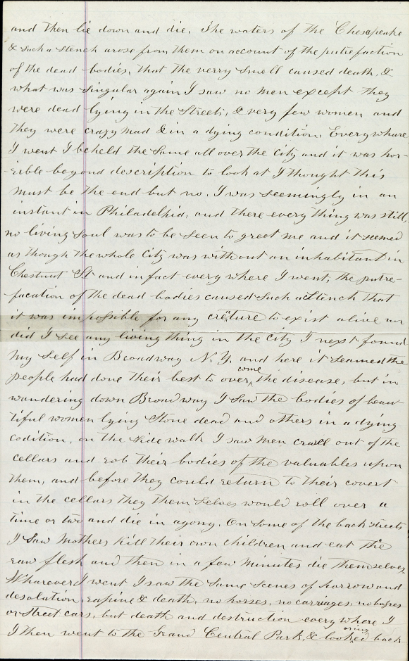 and then lie down and die. The waters of the Chesapeake
& such a stench arose from them on account of the putrefaction
of the dead bodies, that the verry smell caused death. &
what was singular again I saw no men except they
were dead lying in the streets, & very few women and
they were crazy mad & in a dying condition. Everywhere
I went I beheld the same all over the city and it was hor-
rible beyond description to look at I thought this
must be the end but no. I was seemingly in an
instant in Philadelphia, and there every thing was still
no living soul was to be seen to greet me and it seemed
as though the whole City was without an inhabitant in
Chestnut St and in fact every where I went, the putre-
faction of the dead bodies caused such a stench that
it was impossible for any creture to exist alive nor
did I see any living thing in the City I next found
my self in Broadway N.Y. and here it seamed the
people had done their best to over come the disease, but in
wandering down Broadway I saw the bodies of beau
tiful women lying stone dead and others in a dying
codition, on the side walk I saw men crall out of the
cellars and rob their bodies of the valuables upon
them, and before they could return to their covert
in the cellars they them selves would roll over a
time or two and die in agony. On some of the back streets
I saw Mothers kill their own children and eat the
raw flesh and then in a few minutes die themselves,
Wharever I went I saw the same scenes of horror and
desolation rapine & death, no horses, no carriages, no buses
or street cars, but death and destruction every where I
I then went to the Grand Central Park, & looking back